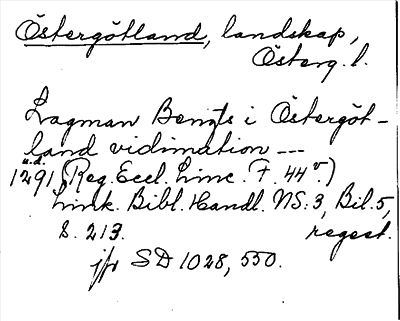 Östergötland, landskap,
Österg. l.
Lagman Bengts i Östergöt-
land vidimation ---
u.d.
1291 (Reg. Eccl. Linc. F. 44v.)
Link. Bibl. Handl. NS: 3, Bil. 5,
s. 213. regest.
jfr SD 1028, 550.